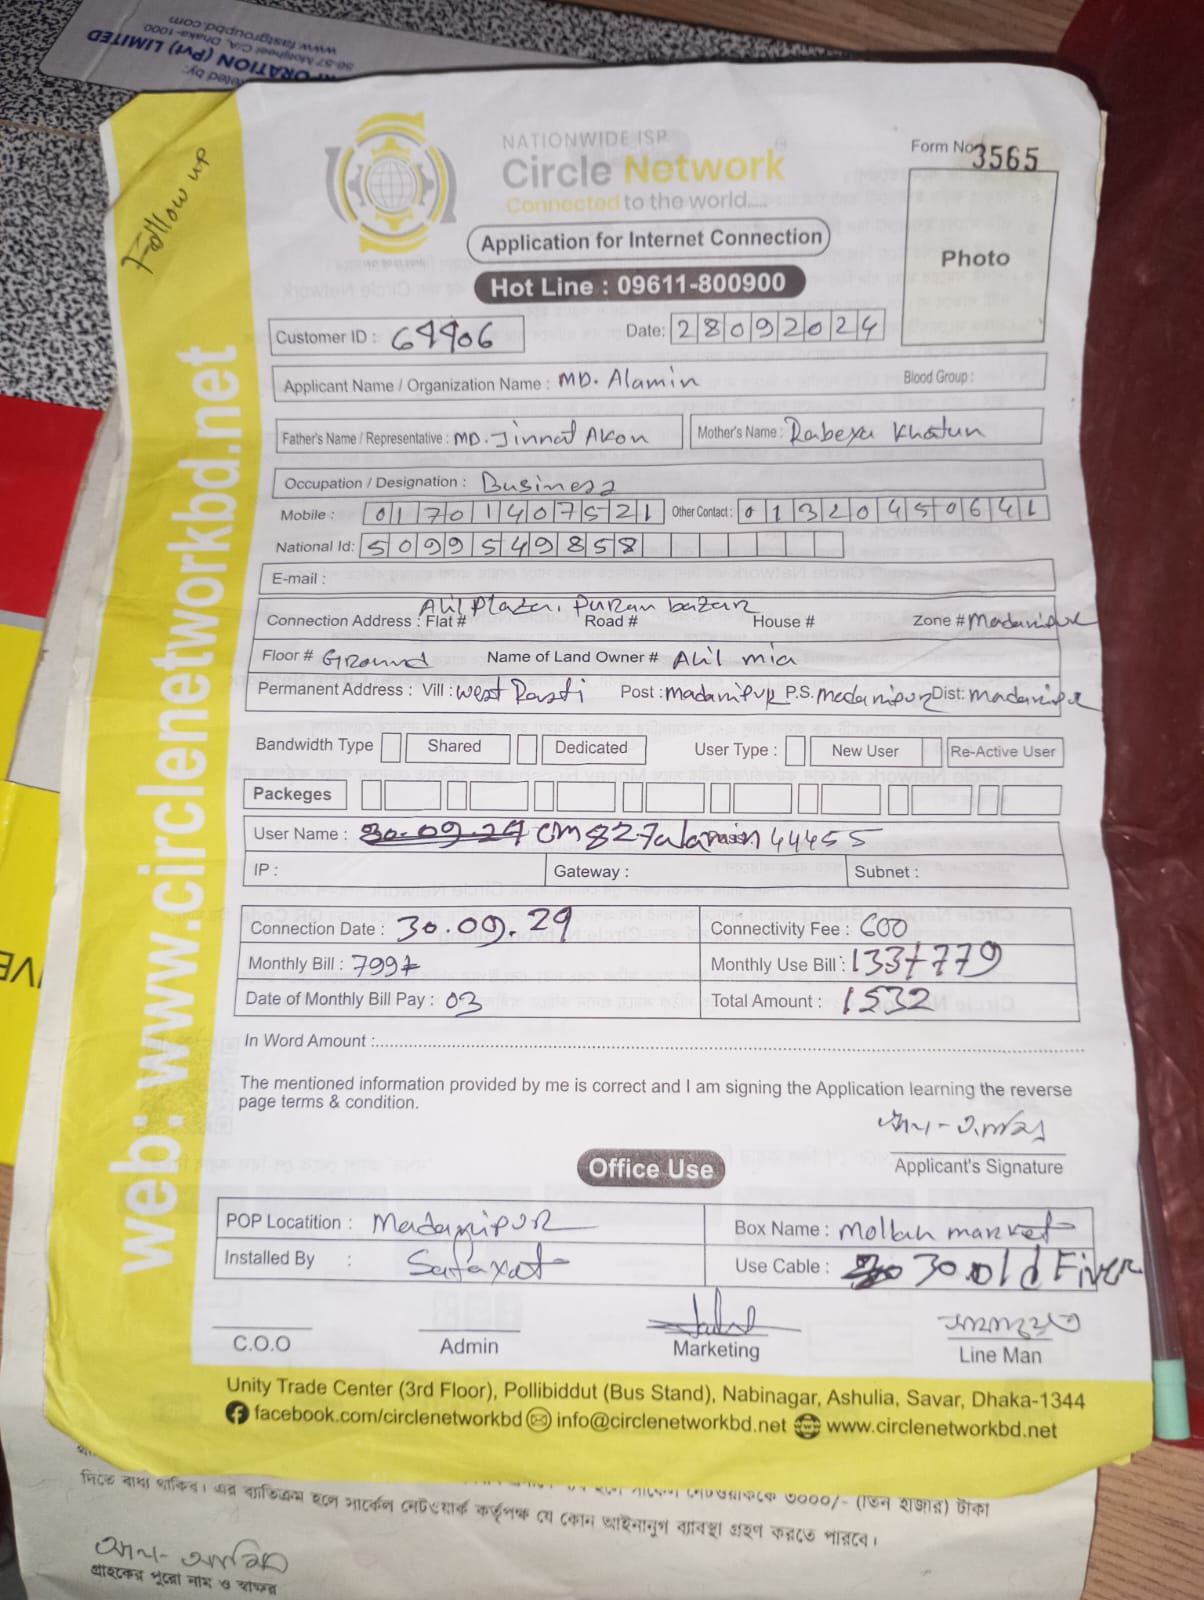 www.fastgroupbd.com
56-57 Motijheel C/A, Dhaka-1000
PORATION (Pvt) LIMITED
Follow up
web: www.circlenetworkbd.net
NATIONWIDE ISP
Circle Network
Connected to the world....
Form No 3565
Application for Internet Connection
Hot Line : 09611-800900
Photo
Customer ID : 64906
Date: 28092024
Applicant Name / Organization Name : MD. Alamin Blood Group :
Father's Name / Representative : MD. Jinnat Akon Mother's Name : Rabeya Khatun
Occupation / Designation : Business
Mobile : 01701407521 Other Contact : 01320450641
National Id: 5099549858
E-mail :
Alil Plaza, Puran bazar
Connection Address : Flat # Road # House # Zone # Madaripur
Floor # Ground Name of Land Owner # Alil mia
Permanent Address : Vill : west Rasti Post : madaripur P.S. madaripur Dist: madaripur
Bandwidth Type Shared Dedicated User Type : New User Re-Active User
Packeges
User Name : 30.09.24 cm827alamin Pass: 44455
IP : Gateway : Subnet :
Connection Date : 30.09.24 Connectivity Fee : 600
Monthly Bill : 799 Monthly Use Bill : 133+779
Date of Monthly Bill Pay : 03 Total Amount : 1532
In Word Amount :
The mentioned information provided by me is correct and I am signing the Application learning the reverse
page terms & condition.
Applicant's Signature
Office Use
POP Locatition : Madaripur Box Name : Mollah market
Installed By : Safayat Use Cable : 30 old Fiver
C.O.O Admin Marketing Line Man
Unity Trade Center (3rd Floor), Pollibiddut (Bus Stand), Nabinagar, Ashulia, Savar, Dhaka-1344
facebook.com/circlenetworkbd info@circlenetworkbd.net www.circlenetworkbd.net
৩০০০/- (তিন হাজার) টাকা
দিতে বাধ্য থাকিব। এর ব্যতিক্রম হলে সার্কেল নেটওয়ার্ক কর্তৃপক্ষ যে কোন আইনানুগ ব্যবস্থা গ্রহণ করতে পারবে।
গ্রাহকের পুরো নাম ও স্বাক্ষর